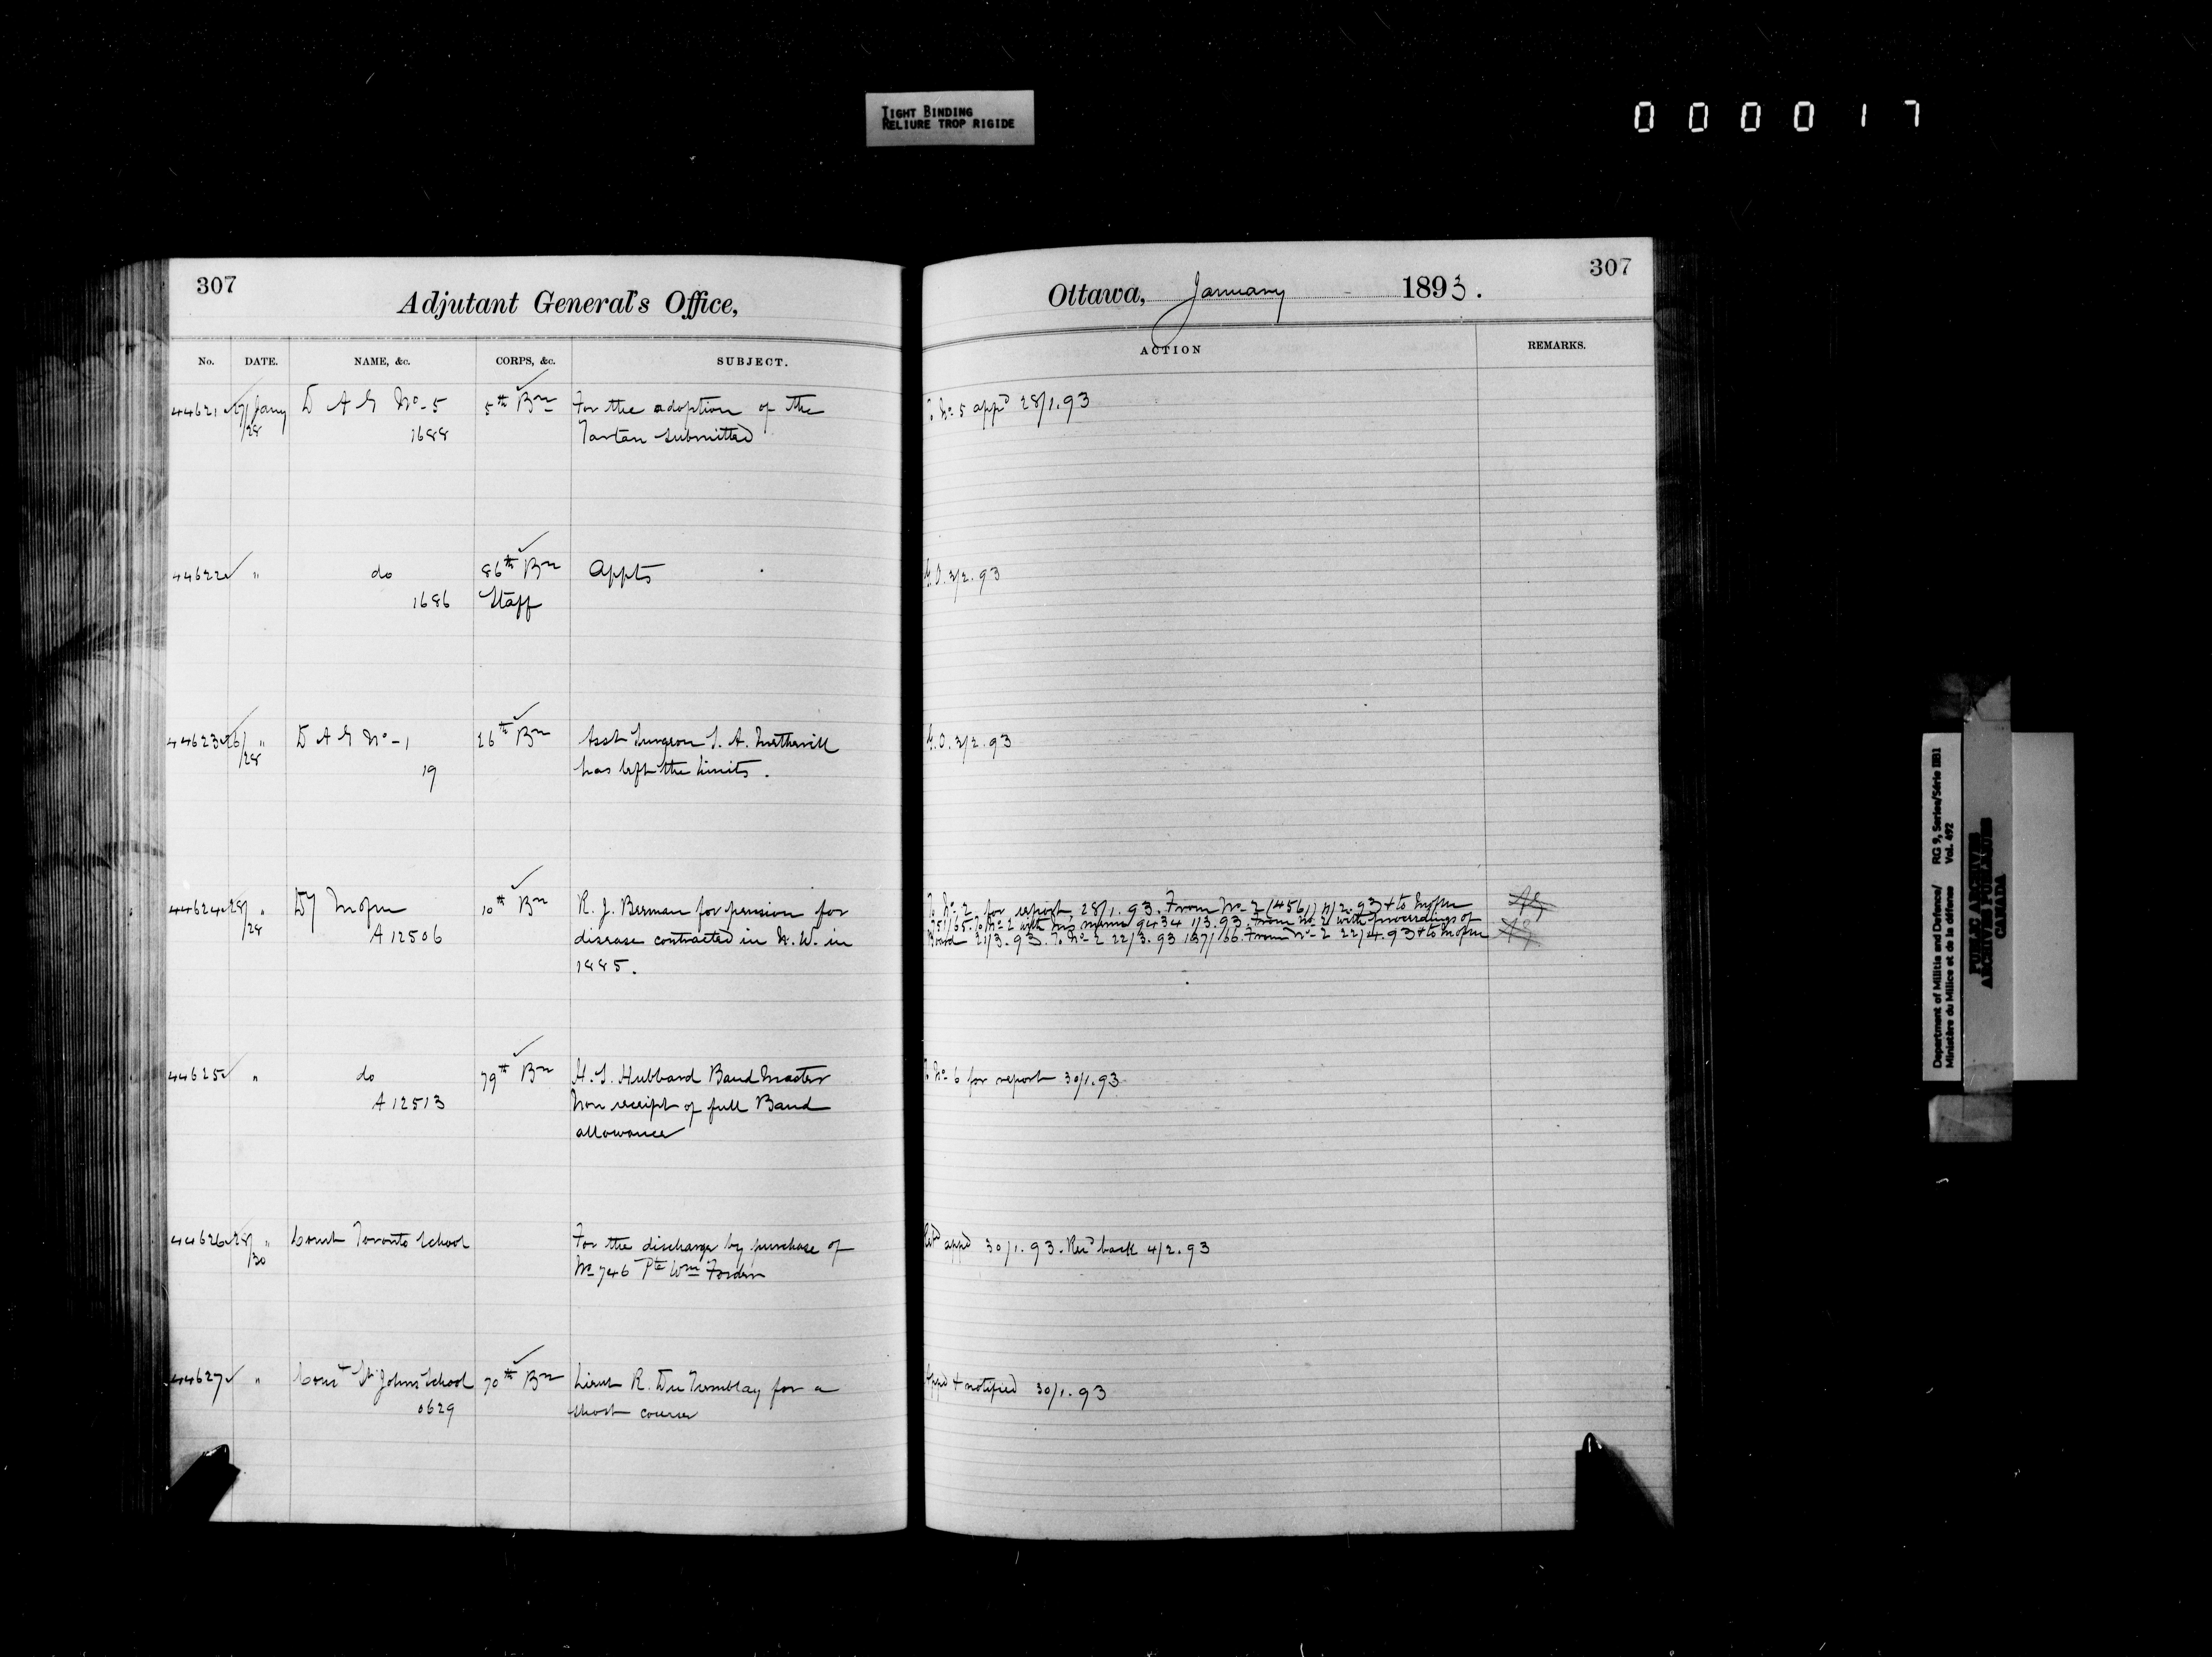 TIGHT BINDING
RELIURE TROP RIGIDE
000017
307
Adjutant General's Office,
No. DATE. NAME, &c. CORPS, &c. SUBJECT.
44621 27/Jany D A G No-5 5th Bn For the adoption of the
/28 1688 Tartan submitted
44622 " do 86th Bn Appts
1686 Staff
44623 26/ " D A G No-1 26th Bn Asst Surgeon
/28 19 has left the limits.
44624 28/ " Dy 10th Bn R. J. Berman for pension for
/28 A 12506 disease contracted in N. W. in
1885.
44625 " do 79th Bn H. S. Hubbard Band Master
A 12513 Non receipt of full Band
allowance
44626 28/ " Comt Toronto School For the discharge by purchase of
/30 No 746 Pte Wm
44627 " Comt St Johns School 70th Bn Lieut R. Du Tremblay for a
0629 short course
307
Ottawa, January 1893.
ACTION REMARKS.
To No 5 appd 28/1.93
G.O. 3/2.93
G.O. 3/2.93
To No 2 for report 28/1.93. From No 2 (4561) /2.93 & to
No 2 with 9434 1/3.93. From No 2 with proceedings of
Board 21/3.93. To No 2 22/3.93 137/166. From No 2 22/4.93 & to
To No 6 for report 30/1.93
Retd appd 30/1.93. Recd back 4/2.93
Appd & notified 30/1.93
Department of Militia and Defence/ RG 9, Series/Série IIB1
Ministère du Milice et de la défense Vol. 492
PUBLIC ARCHIVES
ARCHIVES PUBLIQUES
CANADA